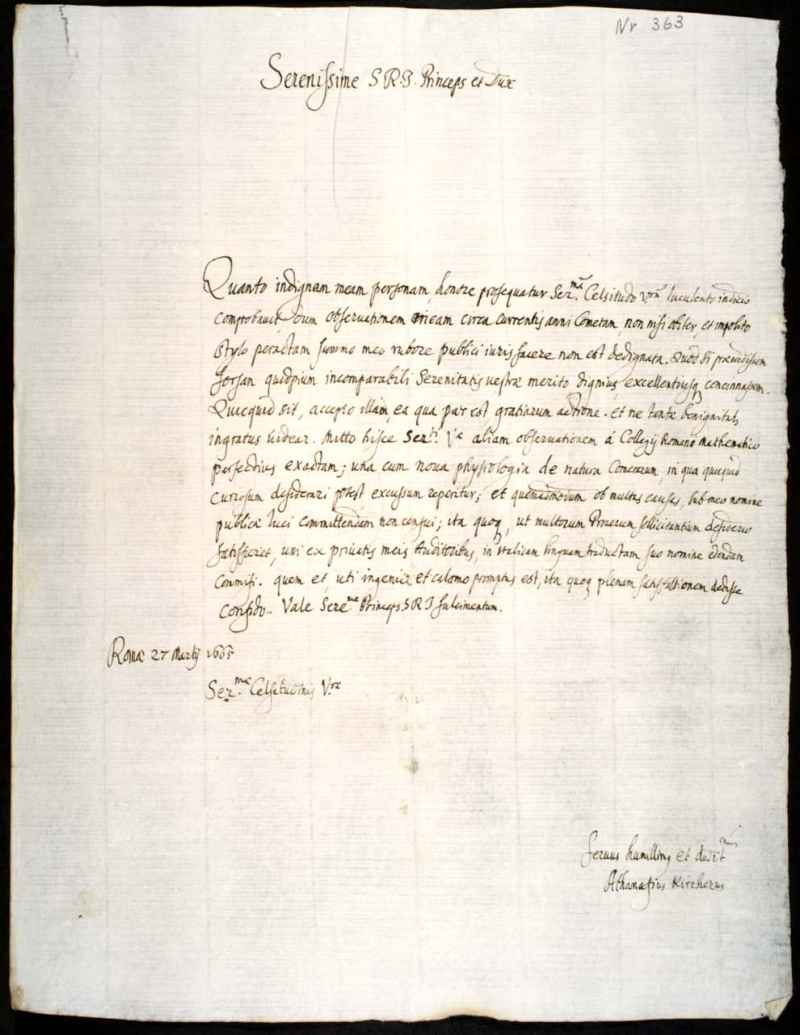 Nr 363
Serenissime S.R.I. Princeps et Dux
Quanto indignam meam personam honore prosequatur Ser.ma Celsitudo vra luculento indicio
comprobavit dum observationem meam circa currentis anni Cometam, non nisi obiter, et impolito
stylo peractam summo meo rubore publici iuris facere non est dedignata. Quod si
forsan quidpium incomparabili Serenitatis vestræ merito dignius excellentiusq concinnassem.
Quicquid sit, accepto illam, ea qua par est gratiarum actione. et ne tantæ benignitatis
ingratus videar. Mitto hisce Ser.ti V.æ aliam observationem á Collegij Romano Mathematico
perfectius exactam; una cum nova physiologia de natura Cometarum, in qua quicquid
curiosum desiderari potest excussum reperitur; et quemadmodum ob multas causas, sub meo nomine
publicæ luci committendam non censui; ita quoq, ut multorum Procerum sollicitantium desiderio
satisfieret, uni ex privatis meis Auditoribus, in italicam linguam traductam suo nomine edendam
commisi. quem et, uti ingenio et calamo promptus est, ita quoq plenam satisfactionem dedisse
confido. Vale Sere.me Princeps S R I fulcimentum.
Romæ 27 Martij 1665
Ser.mæ Celsitudinis V.ræ
servus humillimus et
Athanasius Kircherus